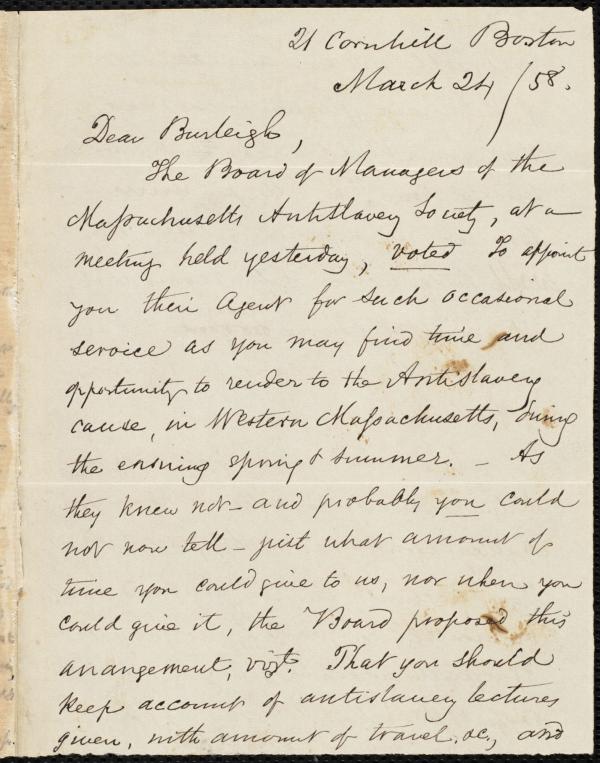 21 Cornhill Boston
March 24/58.
Dear Burleigh,
The Board of Managers of the
Massachusetts Antislavery Society, at a
meeting held yesterday, voted to appoint
you their Agent for such occasional
service as you may find time and
opportunity to render to the Antislavery
cause, in Western Massachusetts, during
the ensuing spring & summer. – As
they knew not – and probably you could
not now tell – just what amount of
time you could give to us, nor when you
could give it, the Board proposed this
arrangement, vizt. That you should
keep account of antislavery lectures
given, with amount of travel, &c., and